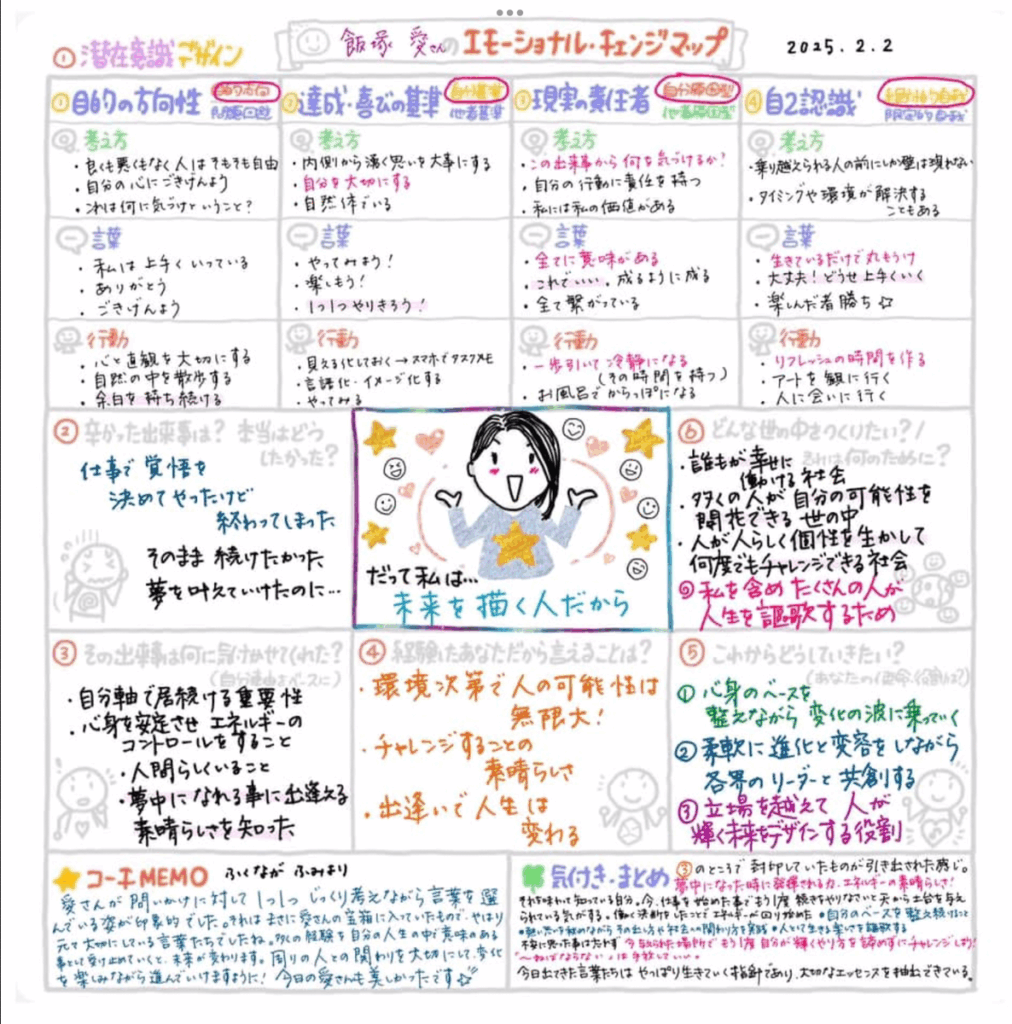 飯塚 愛さんのエモーショナル・チェンジマップ
2025.2.2
①潜在意識デザイン
①目的の方向性
目的方向
問題回避
②達成・喜びの基準
自分基準
他者基準
③現実の責任者
自分原因型
他者原因型
④自己認識
考え方
・良くも悪くもなく人はそもそも自由
・自分の心にごきげんよう
・これは何に気づけということ?
考え方
・内側から湧く思いを大事にする
・自分を大切にする
・自然体でいる
考え方
・この出来事から何を気づけるか?
・自分の行動に責任を持つ
・私には私の価値がある
考え方
・乗り越えられる人の前にしか壁は現れない
・タイミングや環境が解決する
こともある
言葉
・私は上手くいっている
・ありがとう
・ごきげんよう
言葉
・やってみよう!
・楽しもう!
・1つ1つやりきろう!
言葉
・全てに意味がある
・これでいい。成るように成る
・全て繋がっている
言葉
・生きているだけで丸もうけ
・大丈夫!どうせ上手くいく
・楽しんだ者勝ち☆
行動
・心と直観を大切にする
・自然の中を散歩する
・余白を持ち続ける
行動
・見える化しておく→スマホでタスクメモ
・言語化・イメージ化する
・やってみる
行動
・一歩引いて冷静になる
(その時間を持つ)
・お風呂でからっぽになる
行動
・リフレッシュの時間を作る
・アートを観に行く
・人に会いに行く
②辛かった出来事は? 本当はどう
したかった?
仕事で覚悟を
決めてやったけど
終わってしまった
そのまま続けたかった
夢を叶えていけたのに…
だって私は…
未来を描く人だから
⑥どんな世の中をつくりたい?/
それは何のために?
・誰もが幸せに
働ける社会
・多くの人が自分の可能性を
開花できる世の中
・人が人らしく個性を生かして
何度でもチャレンジできる社会
私を含めたくさんの人が
人生を謳歌するため
③その出来事は何に気付かせてくれた?
(自分理由をベースに)
・自分軸で居続ける重要性
・心身を安定させエネルギーの
コントロールをすること
・人間らしくいること
・夢中になれる事に出逢える
素晴らしさを知った
④経験したあなただから言えることは?
・環境次第で人の可能性は
無限大!
・チャレンジすることの
素晴らしさ
・出逢いで人生は
変わる
⑤これからどうしていきたい?
(あなたの使命、役割は?)
①心身のベースを
整えながら変化の波に乗っていく
②柔軟に進化と変容をしながら
各界のリーダーと共創する
③立場を越えて人が
輝く未来をデザインする役割
コーチMEMO ふくなが ふみより
愛さんが問いかけに対して1つ1つじっくり考えながら言葉を選
んでいる姿が印象的でした。それはまさに愛さんの宝箱に入っていたもので、やはり
元で大切にしている言葉たちでしたね。多くの経験を自分の人生の中で意味のある
事として受け止めていくと、未来が変わります。周りの人との関わりを大切にして、変化
を楽しみながら進んでいけますように!今日の愛さんも美しかったです☆
気付き・まとめ
③のところで封印していたものが引き出された感じ。
夢中になった時に発揮される力、エネルギーの素晴らしさ!
それを味わって知っている自分。今、仕事を始めた事でもう1度続をやりなさいと天から土台を与え
られている気がする。働く決断をしたことでエネルギーが回り始めた ●自分のベースを整え続けること
今与えられた場所でもう1度自分が輝くやり方を諦めずにチャレンジしよう!
"〜ねばならない"は手放していい。
今日出てきた言葉たちはやっぱり生きていく指針であり、大切なエッセンスを抽出できている。